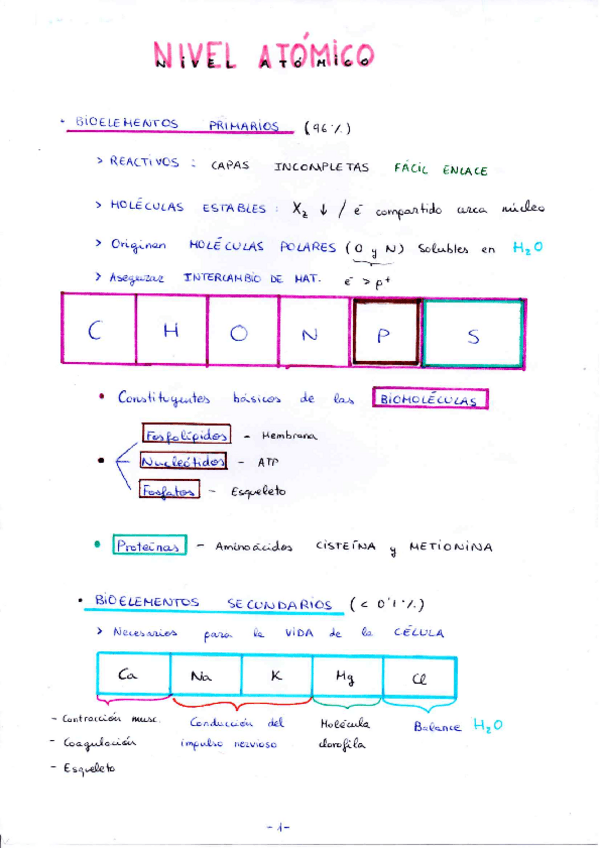 NIVEL ATÓMICO
• BIOELEMENTOS PRIMARIOS (96%)
> REACTIVOS : CAPAS INCOMPLETAS FÁCIL ENLACE
> MOLÉCULAS ESTABLES : Xz ↓ / é compartido cerca núcleo
> Originan MOLÉCULAS POLARES (O y N) Solubles en H₂O
> Asegurar INTERCAMBIO DE MAT. é > p⁺
C H O N P S
• Constituyentes básicos de las BIOMOLÉCULAS
Fosfolípidos - Membrana
• Nucleótidos - ATP
Fosfatos - Esqueleto
• Proteínas - Aminoácidos CISTEÍNA y METIONINA
• BIOELEMENTOS SECUNDARIOS (< 0'1%)
> Necesarios para la VIDA de la CÉLULA
Ca Na K Mg Cl
- Contracción musc. Conducción del Molécula Balance H₂O
- Coagulación impulso nervioso clorofila
- Esqueleto
-1-